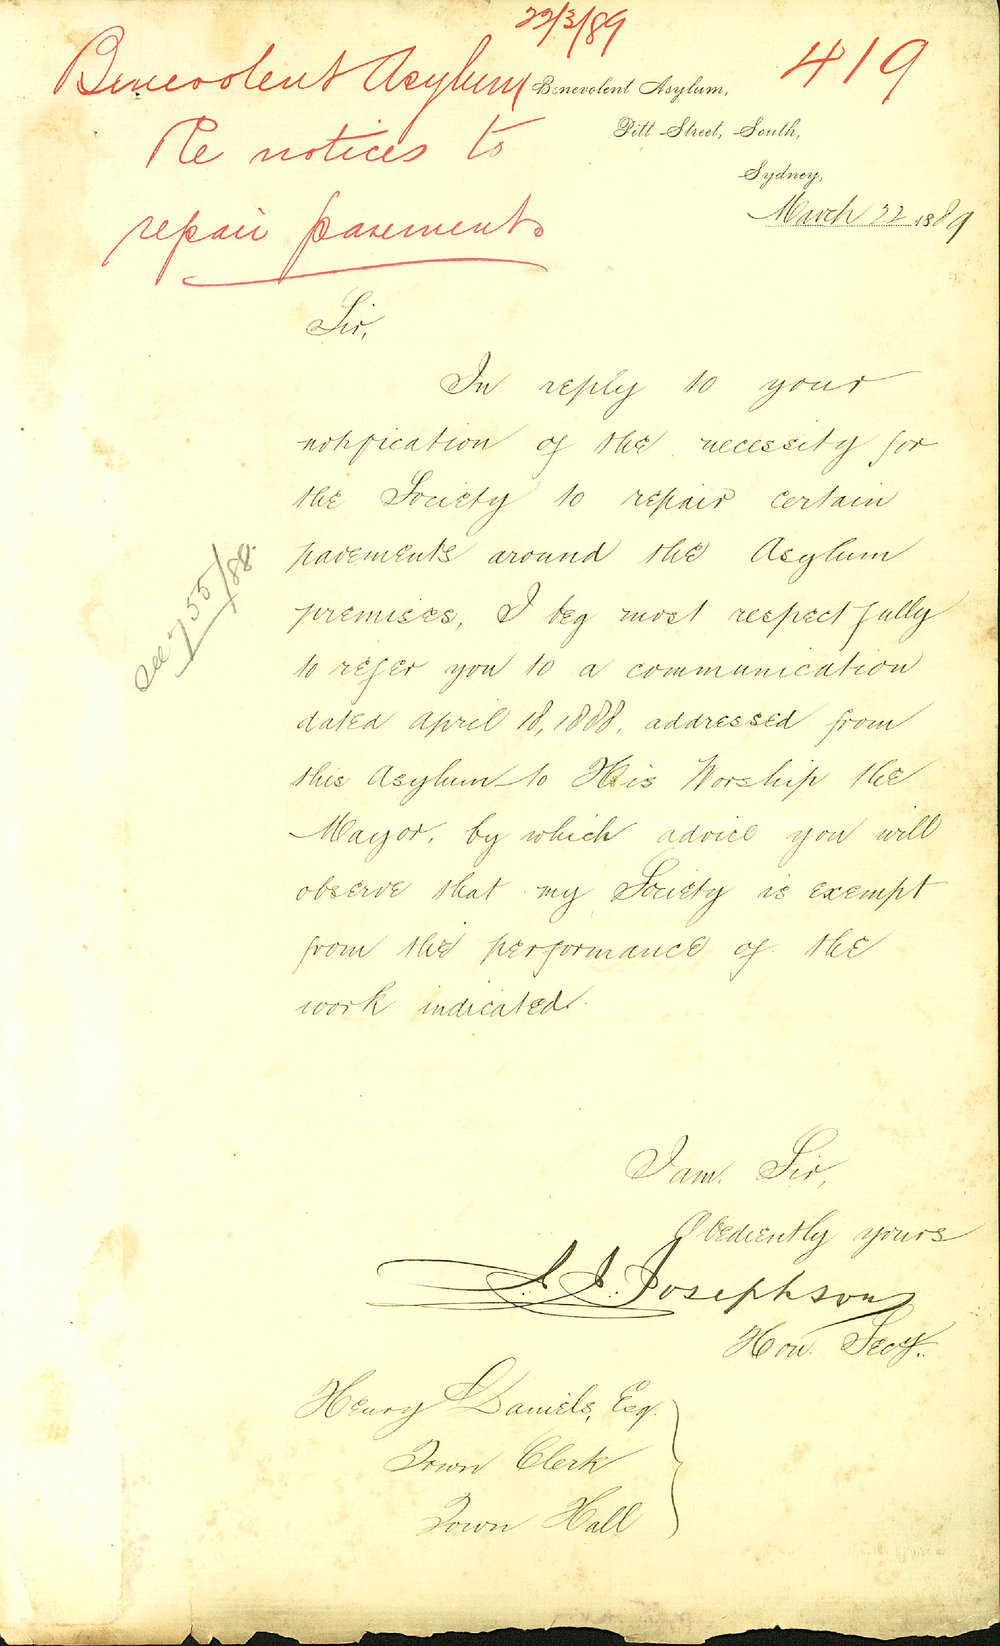 22/3/89
Benevolent Asylum
419
Re notices to
repair pavements
Benevolent Asylum,
Pitt Street, South,
Sydney,
March 22 1889
Sir,
In reply to your
notification of the necessity for
the Society to repair certain
pavements around the Asylum
premises, I beg most respectfully
to refer you to a communication
dated April 18, 1888, addressed from
this Asylum to His Worship the
Mayor, by which advice you will
observe that my Society is exempt
from the performance of the
work indicated.
see 755/88.
I am, Sir,
Obediently yours
J. Josephson
Hon. Secy.
Henry Daniels, Esq.
Town Clerk
Town Hall